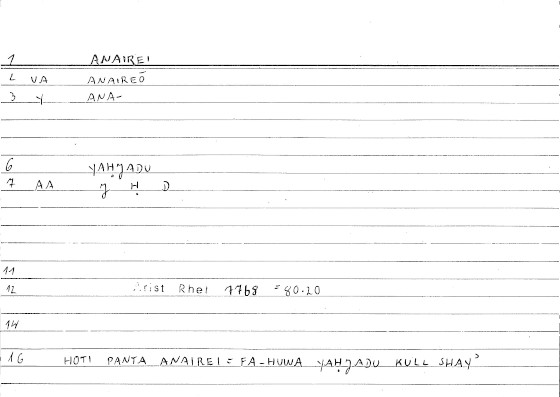 1 ANAIREI
2 VA ANAIREŌ
3 Y ANA-
6 YAḤJADU
7 AA J Ḥ D
11
12 Arist Rhet 1768 = 80.20
14
16 HOTI PANTA ANAIREI = FA-HUWA YAḤJADU KULL SHAYʾ